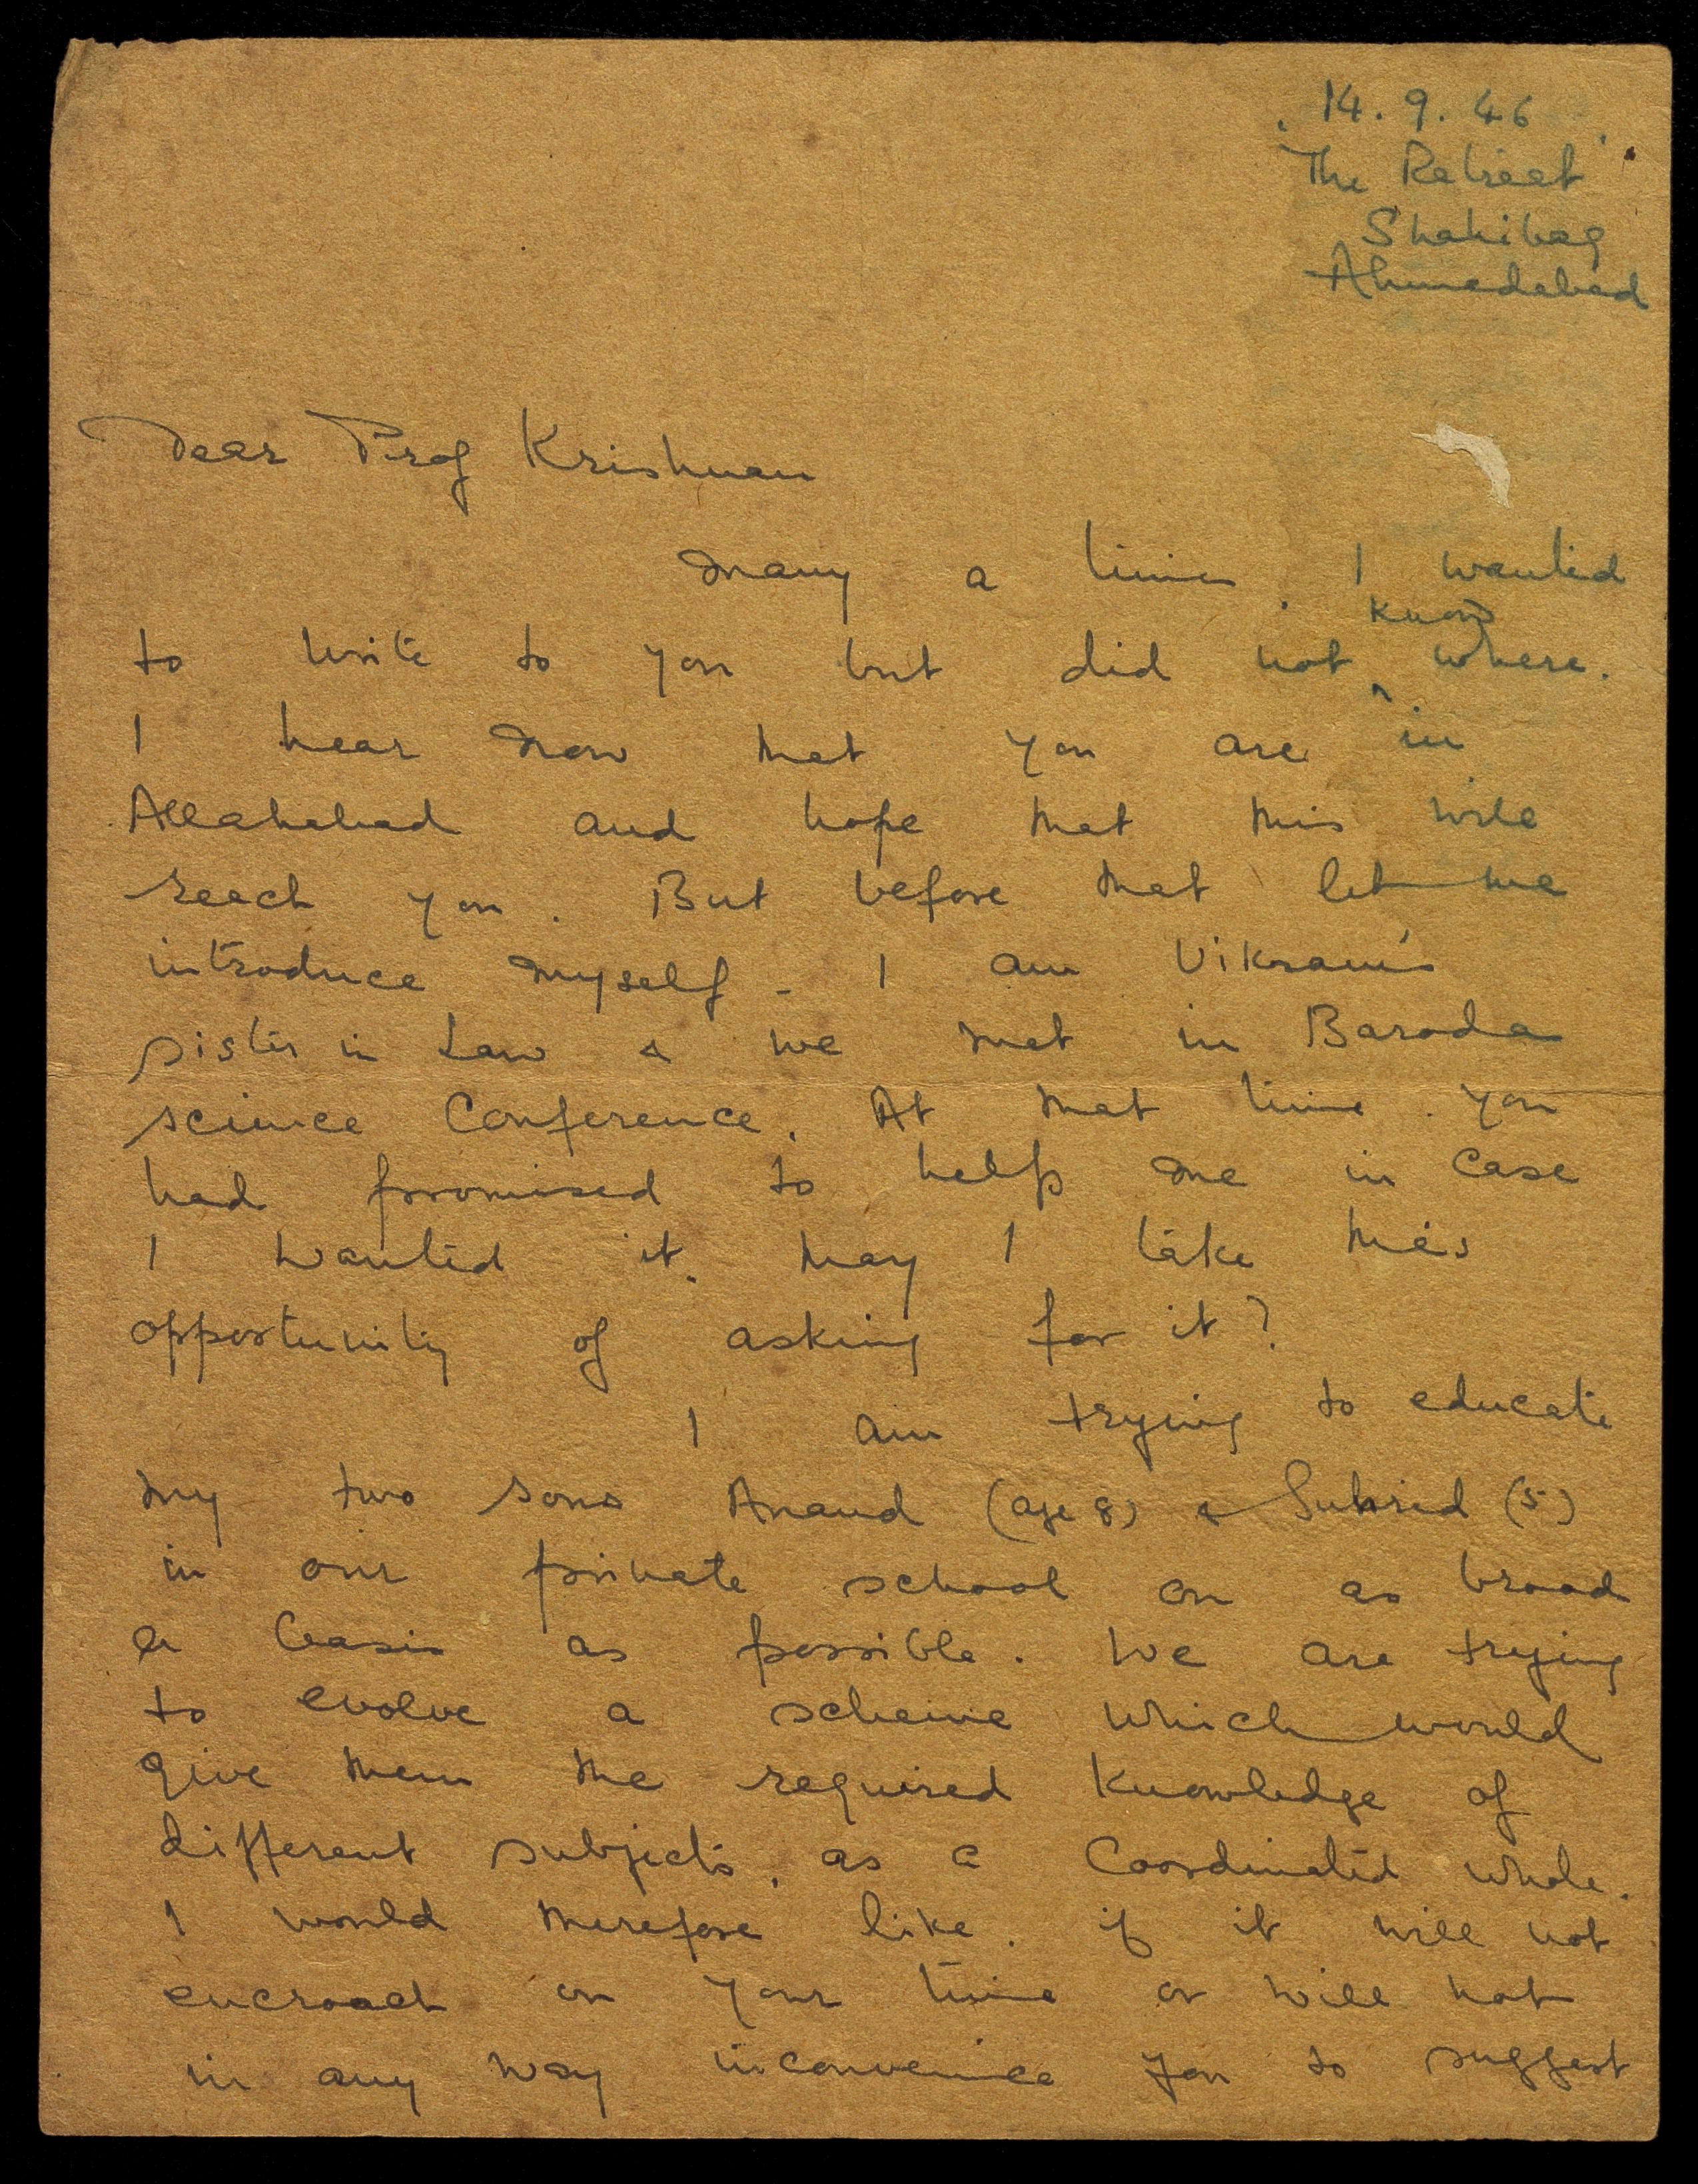 14.9.46
The Retreat
Shahibag
Ahmedabad
Dear Prof Krishnan
Many a times I wanted
know
to write to you but did not ^ where.
I hear now that you are in
Allahabad and hope that this will
reach you. But before that let me
introduce myself - I am Vikram's
sister in Law & we met in Baroda
science Conference. At that time you
had promised to help me in case
I wanted it. May I take this
opportunity of asking for it?
I am trying to educate
my two sons Anand (age 8) & Suhrid (5)
in our private school on as broad
a basis as possible. We are trying
to evolve a scheme which would
give them the required knowledge of
different subjects, as a Coordinated whole.
I would therefore like, if it will not
encroach on your time or will not
in any way inconvenience you to suggest